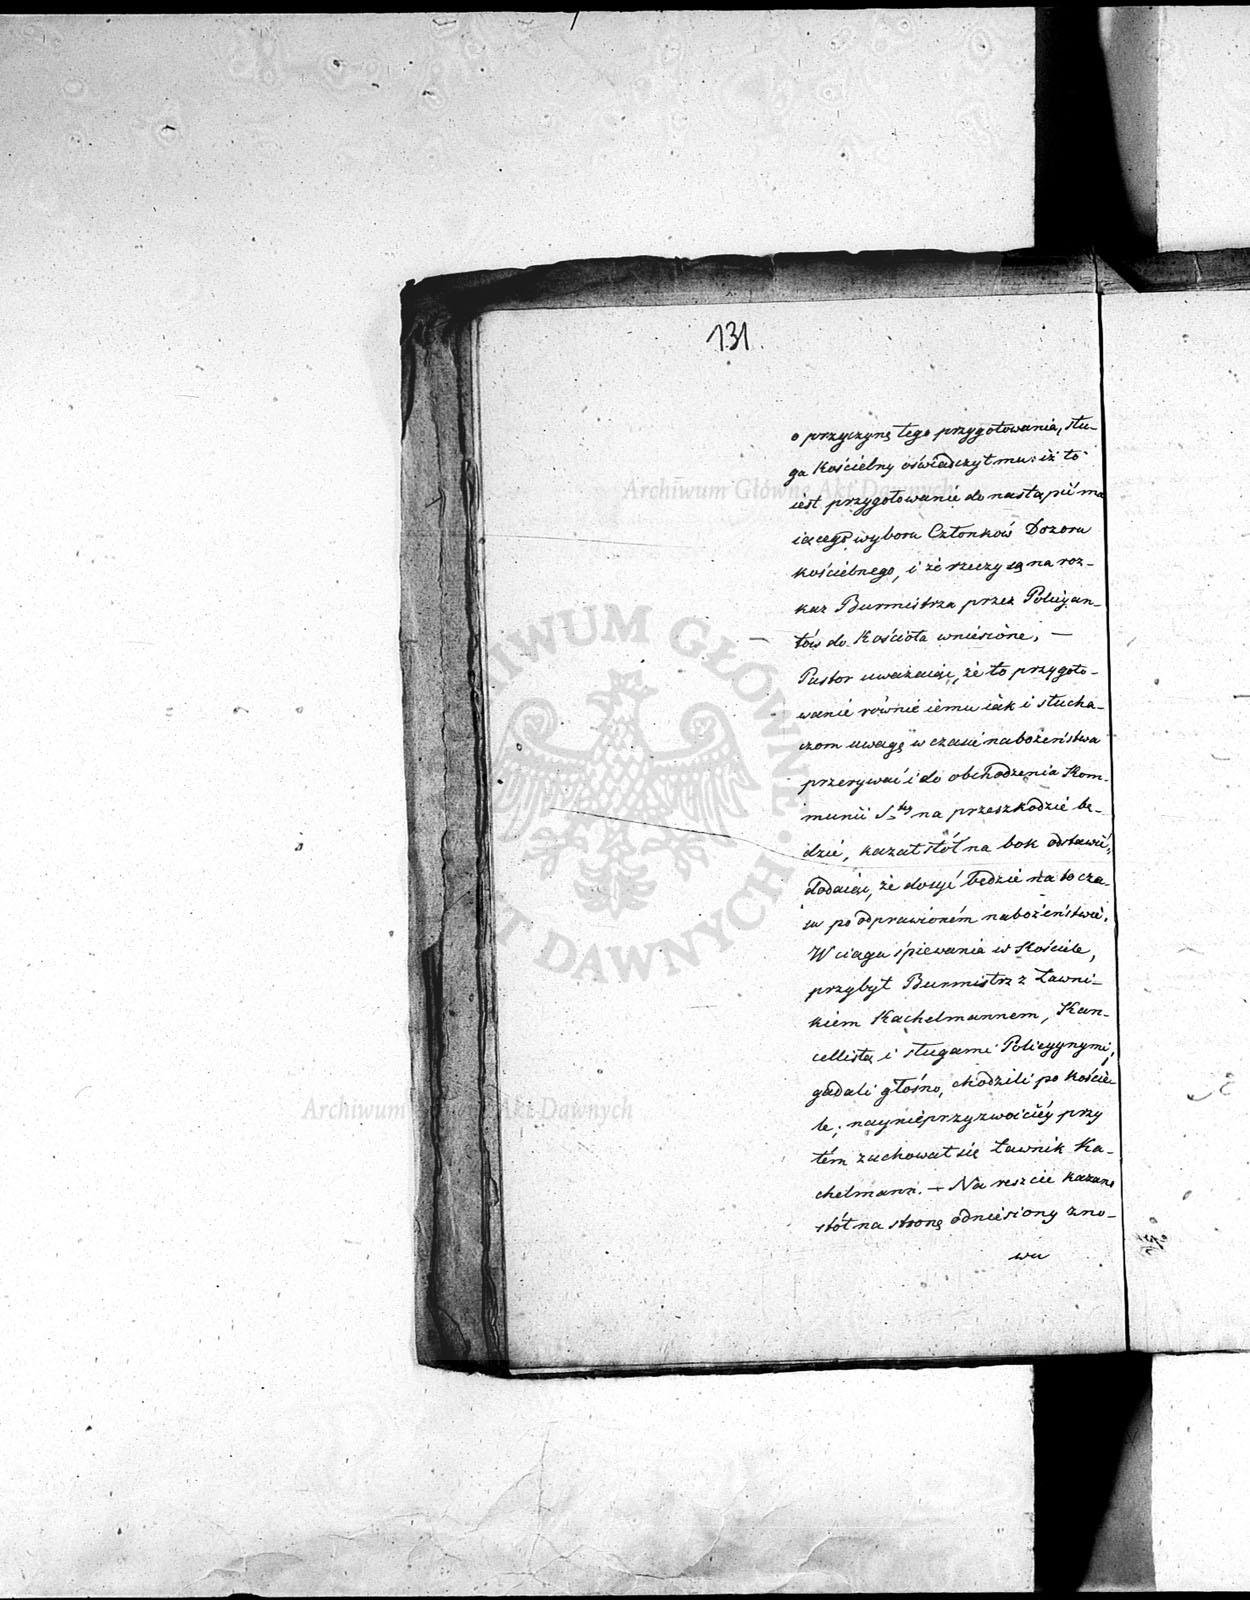 131.
o przyczynę tego przygotowania, słu-
ga Kościelny oświadczył mu: iż to
iest przygotowanie do nastąpić ma
iącego wyboru Członków Dozoru
kościelnego, i że rzeczy są na roz-
kaz Burmistrza przez Policyan-
tów do Kościoła wniesione, —
Pastor uważaiąc, że to przygoto-
wanie równie iemu iak i słucha-
czom uwagę w czasie nabożeństwa
przerywać i do obchodzenia Kom-
munii S-tey na przeszkodzie bę-
dzie, kazał stół na bok odstawić,
dodaiąc, że dosyć będzie na to cza-
su po odprawioném nabożeństwie.
W ciągu śpiewania w Kościele,
przybył Burmistrz z Ławni-
kiem Kachelmannem, Kan-
cellistą i sługami Policyynymi,
gadali głośno, chodzili po kościé-
le; naynieprzyzwoiciéy przy
tém zachował się Ławnik Ka-
chelmann. — Na reszcie kazano
stół na stronę odniesiony zno-
wu
Archiwum Główne Akt Dawnych
ARCHIWUM GŁÓWNE AKT DAWNYCH
Archiwum Główne Akt Dawnych